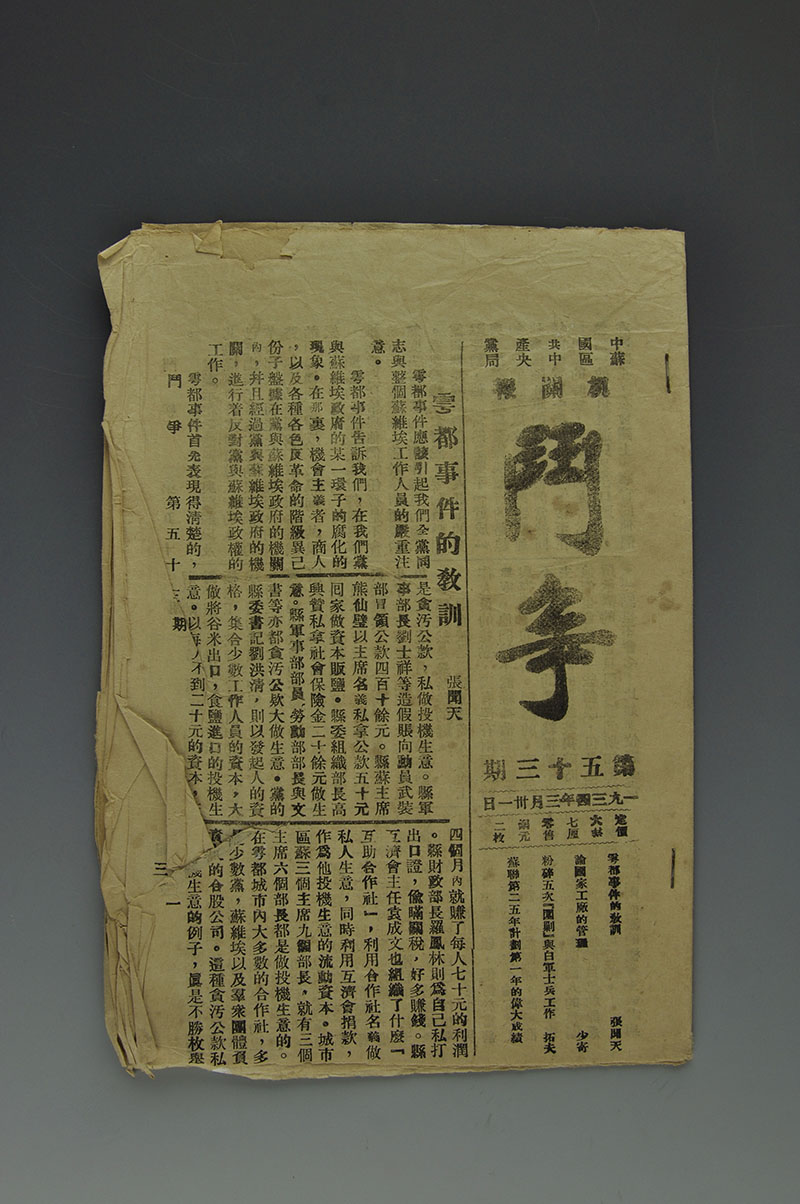 中國共產黨
蘇區中央局
機關報
鬥爭
第五十三期
一九三四年三月卅一日
定價
七厘
零售
銅元
二枚
雩都事件的教訓 張聞天
論國家工廠的管理 少奇
粉碎五次『圍剿』與白軍士兵工作 拓夫
蘇聯第二五年計劃第一年的偉大成績
雩都事件的教訓 張聞天
雩都事件應該引起我們全黨同
志與整個蘇維埃工作人員的嚴重注
意。
雩都事件告訴我們，在我們黨
與蘇維埃政府的某一環子的腐化的
現象。在那裏，機會主義者，商人
，以及各種各色反革命的階級異己
份子盤據在黨與蘇維埃政府的機關
內，幷且經過黨與蘇維埃政府的機
關，進行着反對黨與蘇維埃政權的
工作。
雩都事件首先表現得清楚的，
是貪汚公款，私做投機生意。縣軍
事部長劉士祥等造假賬向動員武裝
部冒領公款四百十餘元。縣蘇主席
熊仙璧以主席名義私拿公款五十元
囘家做資本販鹽。縣委組織部長高
興贊私拿社會保險金二十餘元做生
意。縣軍事部部員，勞動部部長與文
書等亦都貪汚公欵大做生意。黨的
縣委書記劉洪淸，則以發起人的資
格，集合少數工作人員的資本，大
做將谷米出口，食鹽進口的投機生
意。以每人不到二十元的資本，
四個月內就賺了每人七十元的利潤
。縣財政部長羅鳳林則爲自己私打
出口證，偸瞞關稅，好多賺錢。縣
互濟會主任袁成文也組織了什麼『
互助合作社』，利用合作社名義做
私人生意，同時利用互濟會捐款，
作爲他投機生意的流動資本。城市
區蘇三個主席九個部長，就有三個
主席六個部長都是做投機生意的。
在雩都城市內大多數的合作社，多
是少數黨，蘇維埃以及羣衆團體負
責人的合股公司。這種貪汚公款私
機生意的例子，眞是不勝枚舉
鬥爭 第五十三期
三一